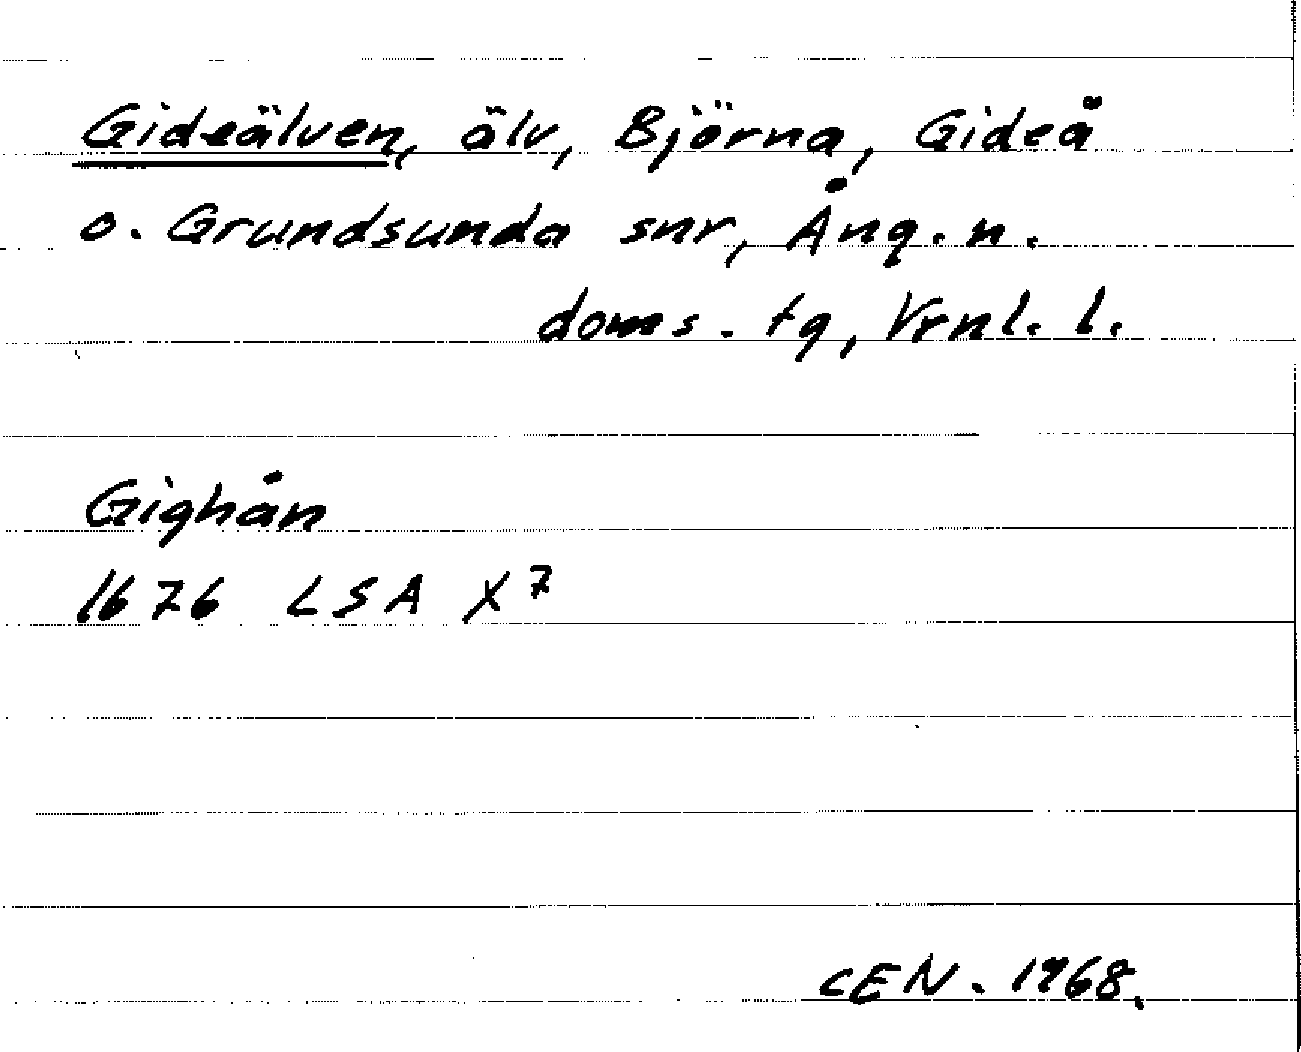 Gideälven, älv, Björna, Gideå
o. Grundsunda snr, Ång. n.
doms. tg, Vrnl. l.
Gighån
1676 LSA X7
CEN. 1968.